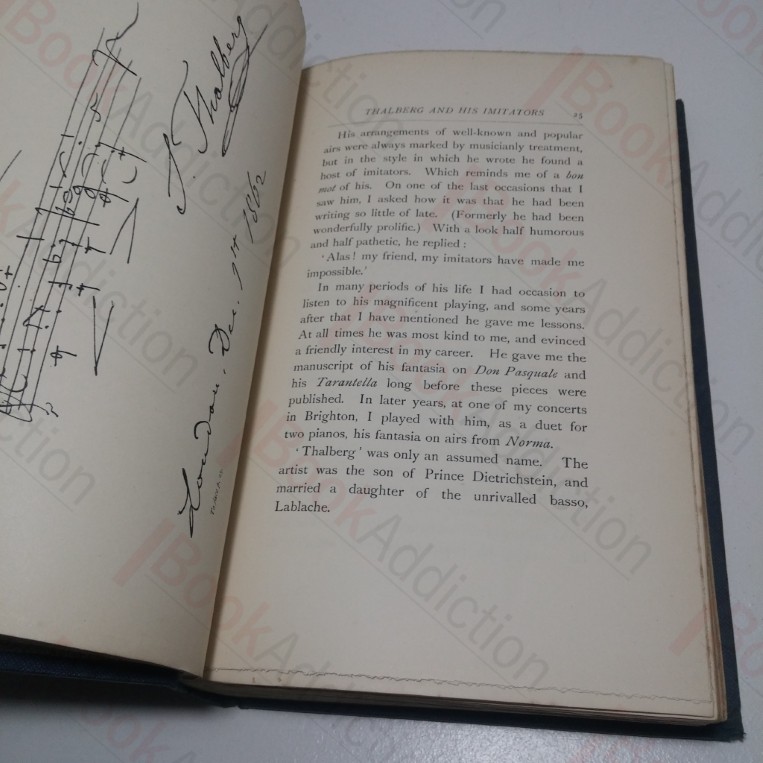 S. Thalberg
London. Dec. 9th 1862
THALBERG AND HIS IMITATORS 25
His arrangements of well-known and popular
airs were always marked by musicianly treatment,
but in the style in which he wrote he found a
host of imitators. Which reminds me of a bon
mot of his. On one of the last occasions that I
saw him, I asked how it was that he had been
writing so little of late. (Formerly he had been
wonderfully prolific.) With a look half humorous
and half pathetic, he replied :
‘Alas! my friend, my imitators have made me
impossible.’
In many periods of his life I had occasion to
listen to his magnificent playing, and some years
after that I have mentioned he gave me lessons.
At all times he was most kind to me, and evinced
a friendly interest in my career. He gave me the
manuscript of his fantasia on Don Pasquale and
his Tarantella long before these pieces were
published. In later years, at one of my concerts
in Brighton, I played with him, as a duet for
two pianos, his fantasia on airs from Norma.
‘Thalberg’ was only an assumed name. The
artist was the son of Prince Dietrichstein, and
married a daughter of the unrivalled basso,
Lablache.
BookAddiction